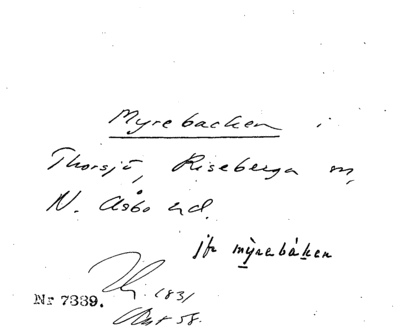 Myrebacken i
Thorsjö, Riseberga sn,
N. Åsbo hd.
jfr myrebåken
1831
Nr 7339.
58.